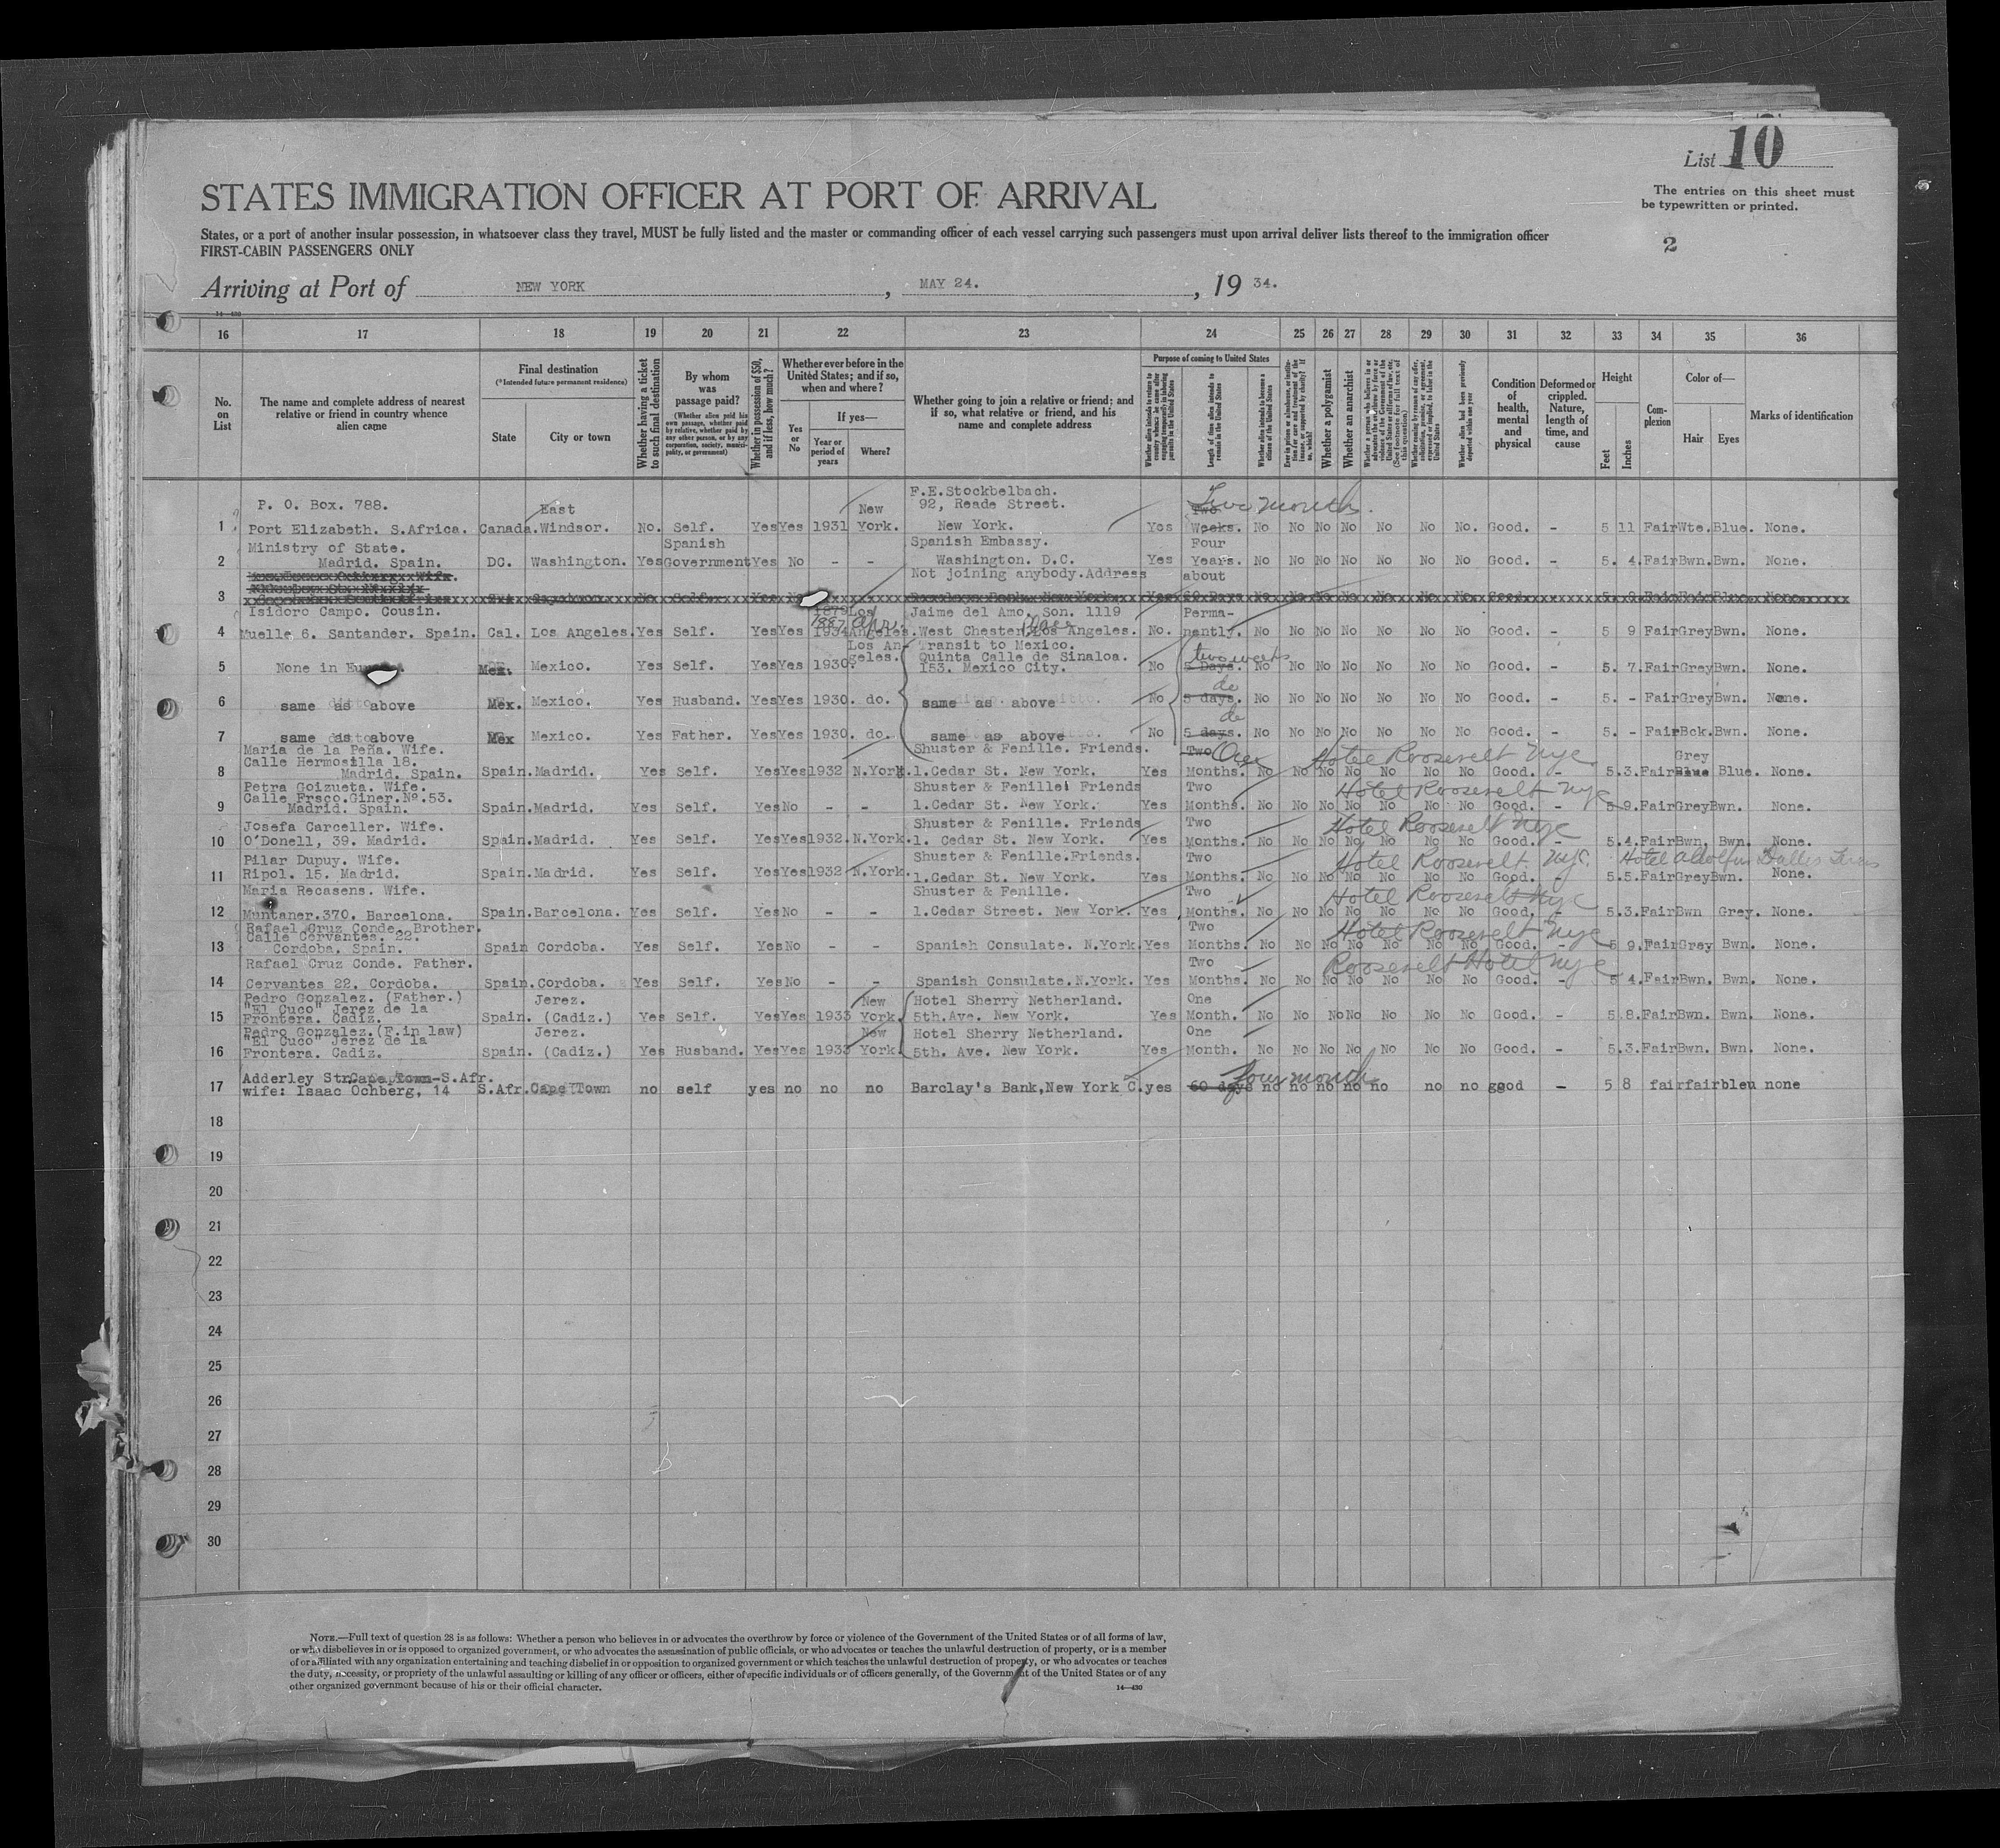 List 10
STATES IMMIGRATION OFFICER AT PORT OF ARRIVAL
The entries on this sheet must
be typewritten or printed.
States, or a port of another insular possession, in whatsoever class they travel, MUST be fully listed and the master or commanding officer of each vessel carrying such passengers must upon arrival deliver lists thereof to the immigration officer
FIRST-CABIN PASSENGERS ONLY
2
Arriving at Port of NEW YORK, MAY 24., 19 34.
14—430
16 17 18 19 20 21 22 23 24 25 26 27 28 29 30 31 32 33 34 35 36
No. on List
The name and complete address of nearest relative or friend in country whence alien came
Final destination (*Intended future permanent residence)
State
City or town
Whether having a ticket to such final destination
By whom was passage paid?
(Whether alien paid his own passage, whether paid by relative, whether paid by any other person, or by any corporation, society, municipality, or government)
Whether in possession of $50, and if less, how much?
Whether ever before in the United States; and if so, when and where?
Yes or No
If yes—
Year or period of years
Where?
Whether going to join a relative or friend; and if so, what relative or friend, and his name and complete address
Purpose of coming to United States
Length of time alien intends to remain in the United States
Whether alien intends to become a citizen of the United States
Whether a polygamist
Whether an anarchist
Condition of health, mental and physical
Deformed or crippled. Nature, length of time, and cause
Height
Feet
Inches
Complexion
Color of—
Hair
Eyes
Marks of identification
P. O. Box. 788. East New F.E.Stockbelbach. 92, Reade Street. Two month.
1 Port Elizabeth. S.Africa. Canada. Windsor. No. Self. Yes Yes 1931 York. New York. Yes Weeks. No No No No No No No. Good. - 5 11 Fair Wte. Blue. None.
Ministry of State. Spanish Spanish Embassy. Four
2 Madrid. Spain. DC. Washington. Yes Government Yes No - - Washington. D.C. Yes Years. No No No No No No No Good. - 5. 4. Fair Bwn. Bwn. None.
Not joining anybody. Address about
3
Isidoro Campo. Cousin. Los Jaime del Amo. Son. 1119 Perma-
4 Muelle 6. Santander. Spain. Cal. Los Angeles. Yes Self. Yes Yes 1934 Angeles. West Chester Los Angeles. No. nently. No No No No No No No Good. - 5 9 Fair Grey Bwn. None.
Los An- geles. Transit to Mexico. Quinta Calle de Sinaloa. two weeks
5 None in Mex. Mexico. Yes Self. Yes Yes 1930. 153. Mexico City. No 5 Days. No No No No No No No Good. - 5. 7. Fair Grey Bwn. None.
6 same as above Mex. Mexico. Yes Husband. Yes Yes 1930. do. same as above No 5 days. do No No No No No No No Good. - 5. - Fair Grey Bwn. None.
7 same as above Mex Mexico. Yes Father. Yes Yes 1930. do. same as above No 5 days. do No No No No No No No Good. - 5. - Fair Bck. Bwn. None.
Maria de la Peña. Wife. Shuster & Fenille. Friends. Two One Hotel Roosevelt Nyc Grey
Calle Hermosilla 18.
8 Madrid. Spain. Spain. Madrid. Yes Self. Yes Yes 1932 N.York. 1.Cedar St. New York. Yes Months. No No No No No No No Good. - 5.3. Fair Blue. None.
Petra Goizueta. Wife. Shuster & Fenille. Friends Two Hotel Roosevelt Nyc
Calle Frsco.Giner.Nº.53.
9 Madrid. Spain. Spain. Madrid. Yes Self. Yes No - - 1.Cedar St. New York. Yes Months. No No No No No No No Good. - 5 9. Fair Grey Bwn. None.
Josefa Carceller. Wife. Shuster & Fenille. Friends Two Hotel Roosevelt Nyc
10 O'Donell, 39. Madrid. Spain. Madrid. Yes Self. Yes Yes 1932. N.York. 1. Cedar St. New York. Yes Months. No No No No No No No Good. - 5.4. Fair Bwn. Bwn. None.
Pilar Dupuy. Wife. Shuster & Fenille.Friends. Two Hotel Roosevelt. Nyc. Hotel Adolfus Dallas Texas
11 Ripol. 15. Madrid. Spain. Madrid. Yes Self. Yes Yes 1932 N.York. 1.Cedar St. New York. Yes Months. No No No No No No No Good. - 5.5. Fair Grey Bwn. None.
Maria Recasens. Wife. Shuster & Fenille. Two Hotel Roosevelt Nyc
12 Muntaner.370. Barcelona. Spain. Barcelona. Yes Self. Yes No - - 1.Cedar Street. New York. Yes Months. No No No No No No No Good. - 5.3. Fair Bwn Grey. None.
Rafael Cruz Conde. Brother. Two Hotel Roosevelt Nyc
Calle Cervantes. 22.
13 Cordoba. Spain. Spain Cordoba. Yes Self. Yes No - - Spanish Consulate. N.York. Yes Months. No No No No No No No Good. - 5 9. Fair Grey Bwn. None.
Rafael Cruz Conde. Father. Two Roosevelt Hotel Nyc
14 Cervantes 22. Cordoba. Spain. Cordoba. Yes Self. Yes No - - Spanish Consulate. N.York. Yes Months. No No No No No No No Good. - 5 4. Fair Bwn. Bwn. None.
Pedro Gonzalez. (Father.) Jerez. New Hotel Sherry Netherland. One
"El Cuco" Jerez de la
15 Frontera. Cadiz. Spain. (Cadiz.) Yes Self. Yes Yes 1933 York. 5th.Ave. New York. Yes Month. No No No No No No No Good. - 5 8. Fair Bwn. Bwn. None.
Pedro Gonzalez.(F.in law) Jerez. New Hotel Sherry Netherland. One
"El Cuco" Jerez de la
16 Frontera. Cadiz. Spain. (Cadiz.) Yes Husband. Yes Yes 1933 York. 5th. Ave. New York. Yes Month. No No No No No No No Good. - 5.3. Fair Bwn. Bwn. None.
Adderley Str. Cape Town-S.Afr. Four month
17 wife: Isaac Ochberg, 14 S.Afr. Cape Town no self yes no no no Barclay's Bank,New York C. yes 60 days no no no no no no no good - 5 8 fair fair bleu none
18
19
20
21
22
23
24
25
26
27
28
29
30
NOTE.—Full text of question 28 is as follows: Whether a person who believes in or advocates the overthrow by force or violence of the Government of the United States or of all forms of law,
or who disbelieves in or is opposed to organized government, or who advocates the assassination of public officials, or who advocates or teaches the unlawful destruction of property, or is a member
of or affiliated with any organization entertaining and teaching disbelief in or opposition to organized government or which teaches the unlawful destruction of property, or who advocates or teaches
the duty, necessity, or propriety of the unlawful assaulting or killing of any officer or officers, either of specific individuals or of officers generally, of the Government of the United States or of any
other organized government because of his or their official character.
14—430